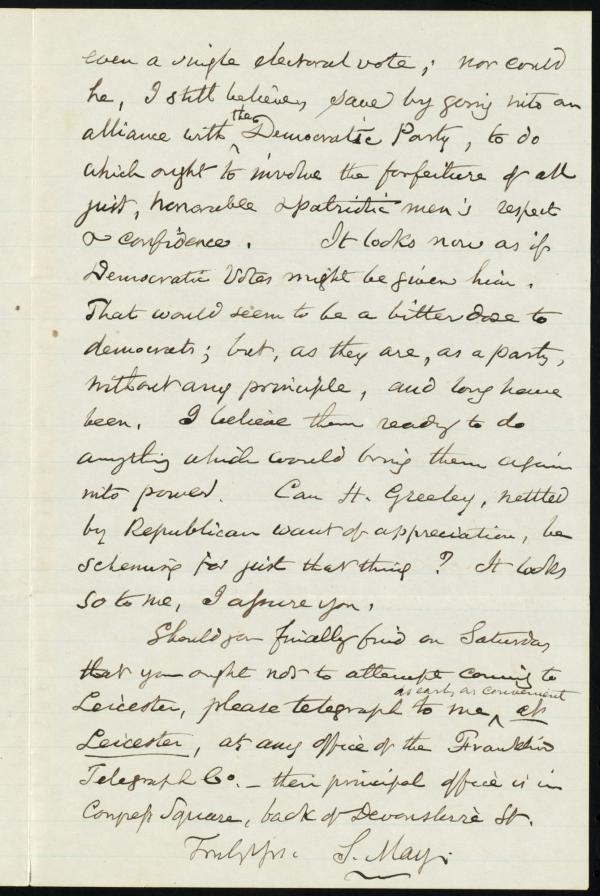 even a single electoral vote; nor could
he, I still believe, save by going into an
alliance with the Democratic Party, to do
which ought to involve the forfeiture of all
just, honorable & patriotic men's respect
& confidence. It looks now as if
Democratic Votes might be given him.
That would seem to be a bitter dose to
democrats; but, as they are, as a party,
without any principle, and long have
been, I believe them ready to do
anything which would bring them again
into power. Can H. Greeley, nettled
by Republican want of appreciation, be
scheming for just that thing? It looks
so to me, I assure you.
Should you finally find on Saturday
that you ought not to attempt coming to
Leicester, please telegraph to me, as early as convenient at
Leicester, at any office of the Franklin
Telegraph Co. - their principal office is in
Congress Square, back of Devonshire St.
Truly Yrs. S. May.